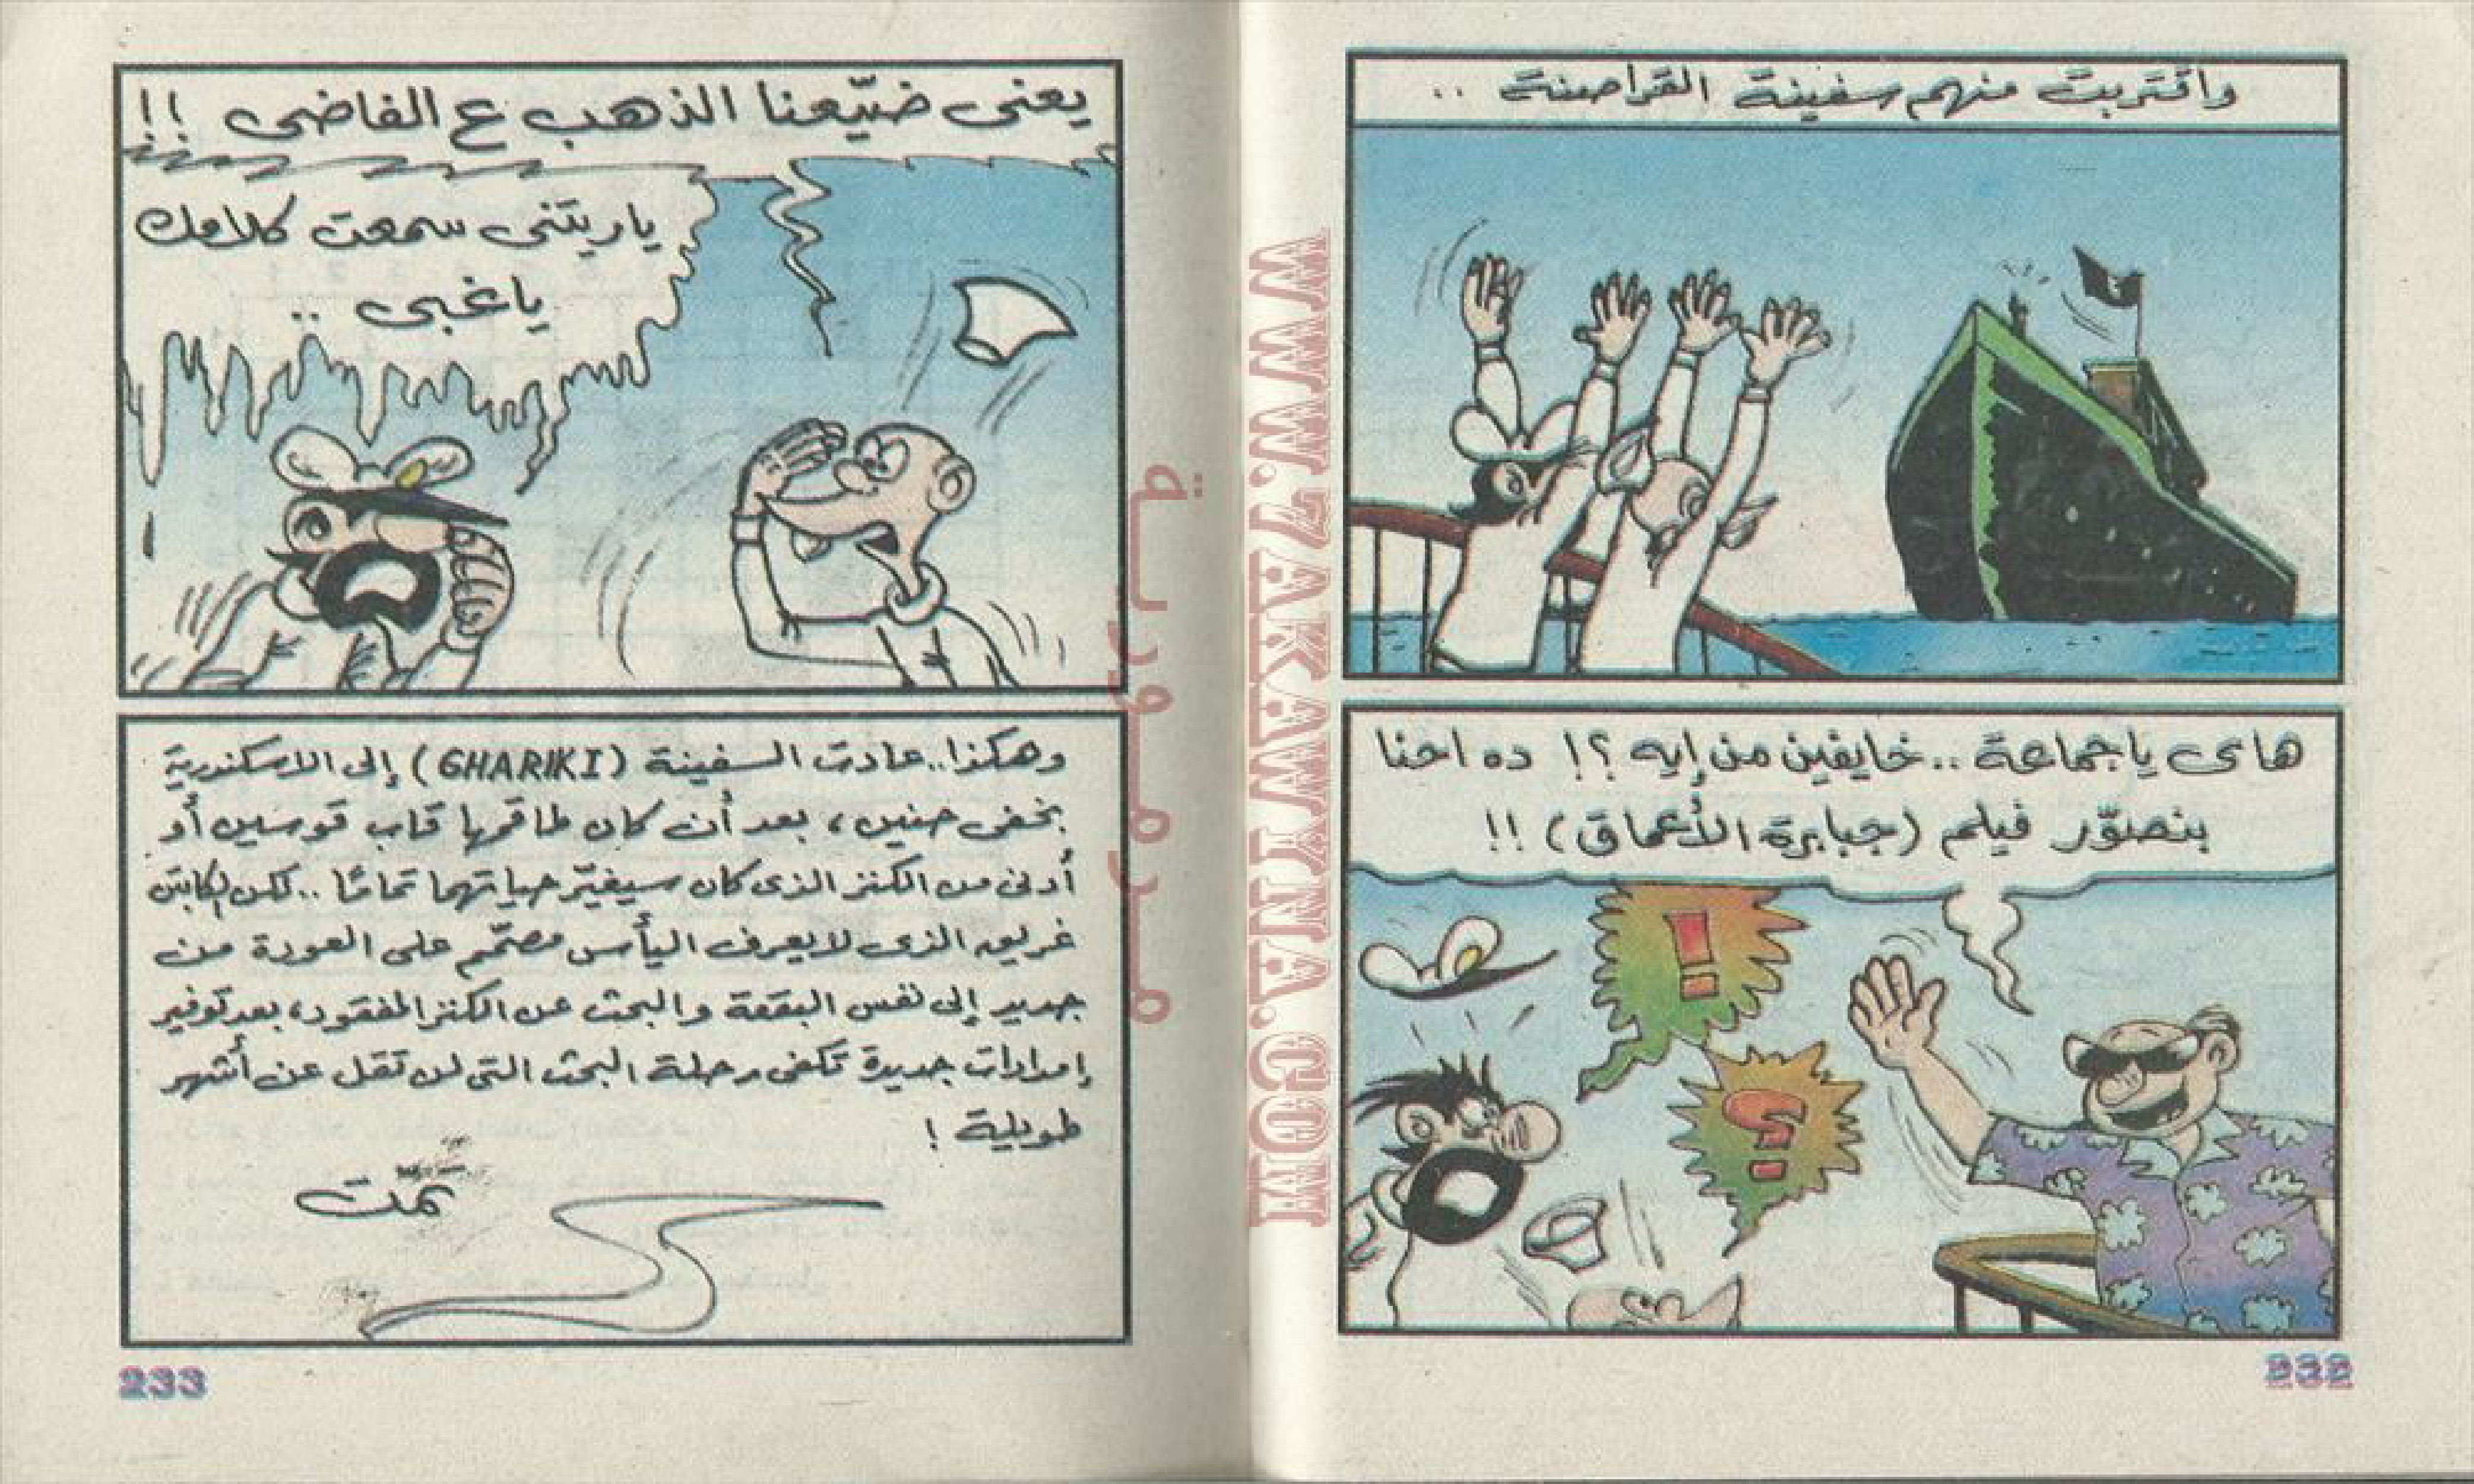 واقتربت منهم سفينة القراصنة ..
هاى ياجماعة .. خايفين من إيه ؟! ده احنا
بنصوّر فيلم (جبابرة الأعماق) !!
232
يعنى ضيّعنا الذهب ع الفاضى !!
ياريتنى سمعت كلامك
ياغبى ..
وهكذا.. عادت السفينة (GHARIKI) إلى الاسكندرية
بخفى حنين، بعد أن كان طاقمها قاب قوسين أو
أدنى من الكنز الذى كان سيغيّر حياتهما تمامًا .. لكن الكابتن
غريق الذى لا يعرف اليأس مصمّم على العودة من
جديد إلى نفس البقعة والبحث عن الكنز المفقود، بعد توفير
إمدادات جديدة تكفى رحلة البحث التى لن تقل عن أشهر
طويلة !
تمّت
233
WWW.ZAKAWYNA.COM
!
؟